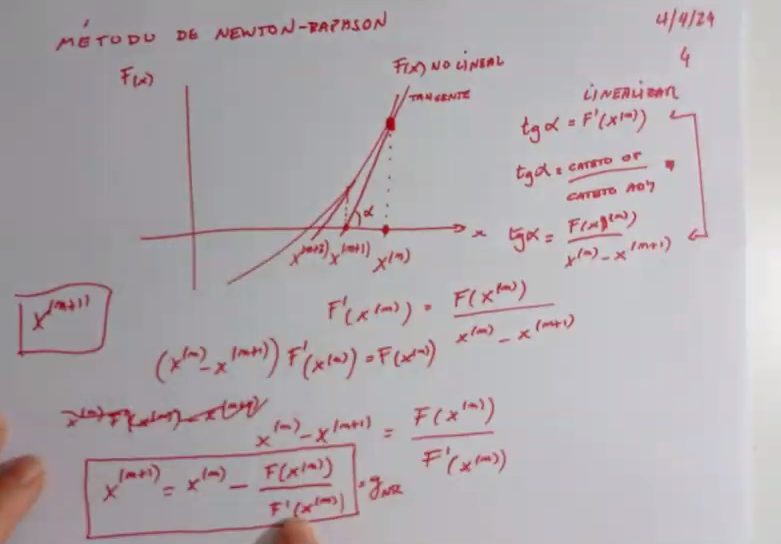 MÉTODO DE NEWTON-RAPHSON
4/4/24
4
F(x)
F(x) NO LINEAL
TANGENTE
LINEALIZAR
tgα = F'(x^(m))
tgα = CATETO OP / CATETO ADY
tgα = F(x^(m)) / x^(m) - x^(m+1)
α
x
x^(m+2) x^(m+1) x^(m)
x^(m+1)
F'(x^(m)) = F(x^(m)) / x^(m) - x^(m+1)
(x^(m) - x^(m+1)) F'(x^(m)) = F(x^(m))
x^(m) - x^(m+1) = F(x^(m)) / F'(x^(m))
x^(m+1) = x^(m) - F(x^(m)) / F'(x^(m)) = g_NR